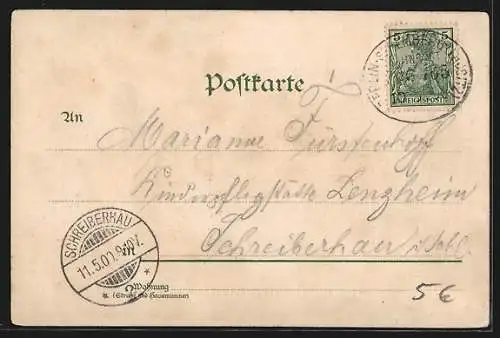 5
REICHSPOST
Postkarte
An
Marianne Fürstenhoff
Kinderpflegstätte Lenzheim
Schreiberhau i. Schl.
SCHREIBERHAU
11.5.01.
Wohnung
(Straße und Hausnummer)
5€